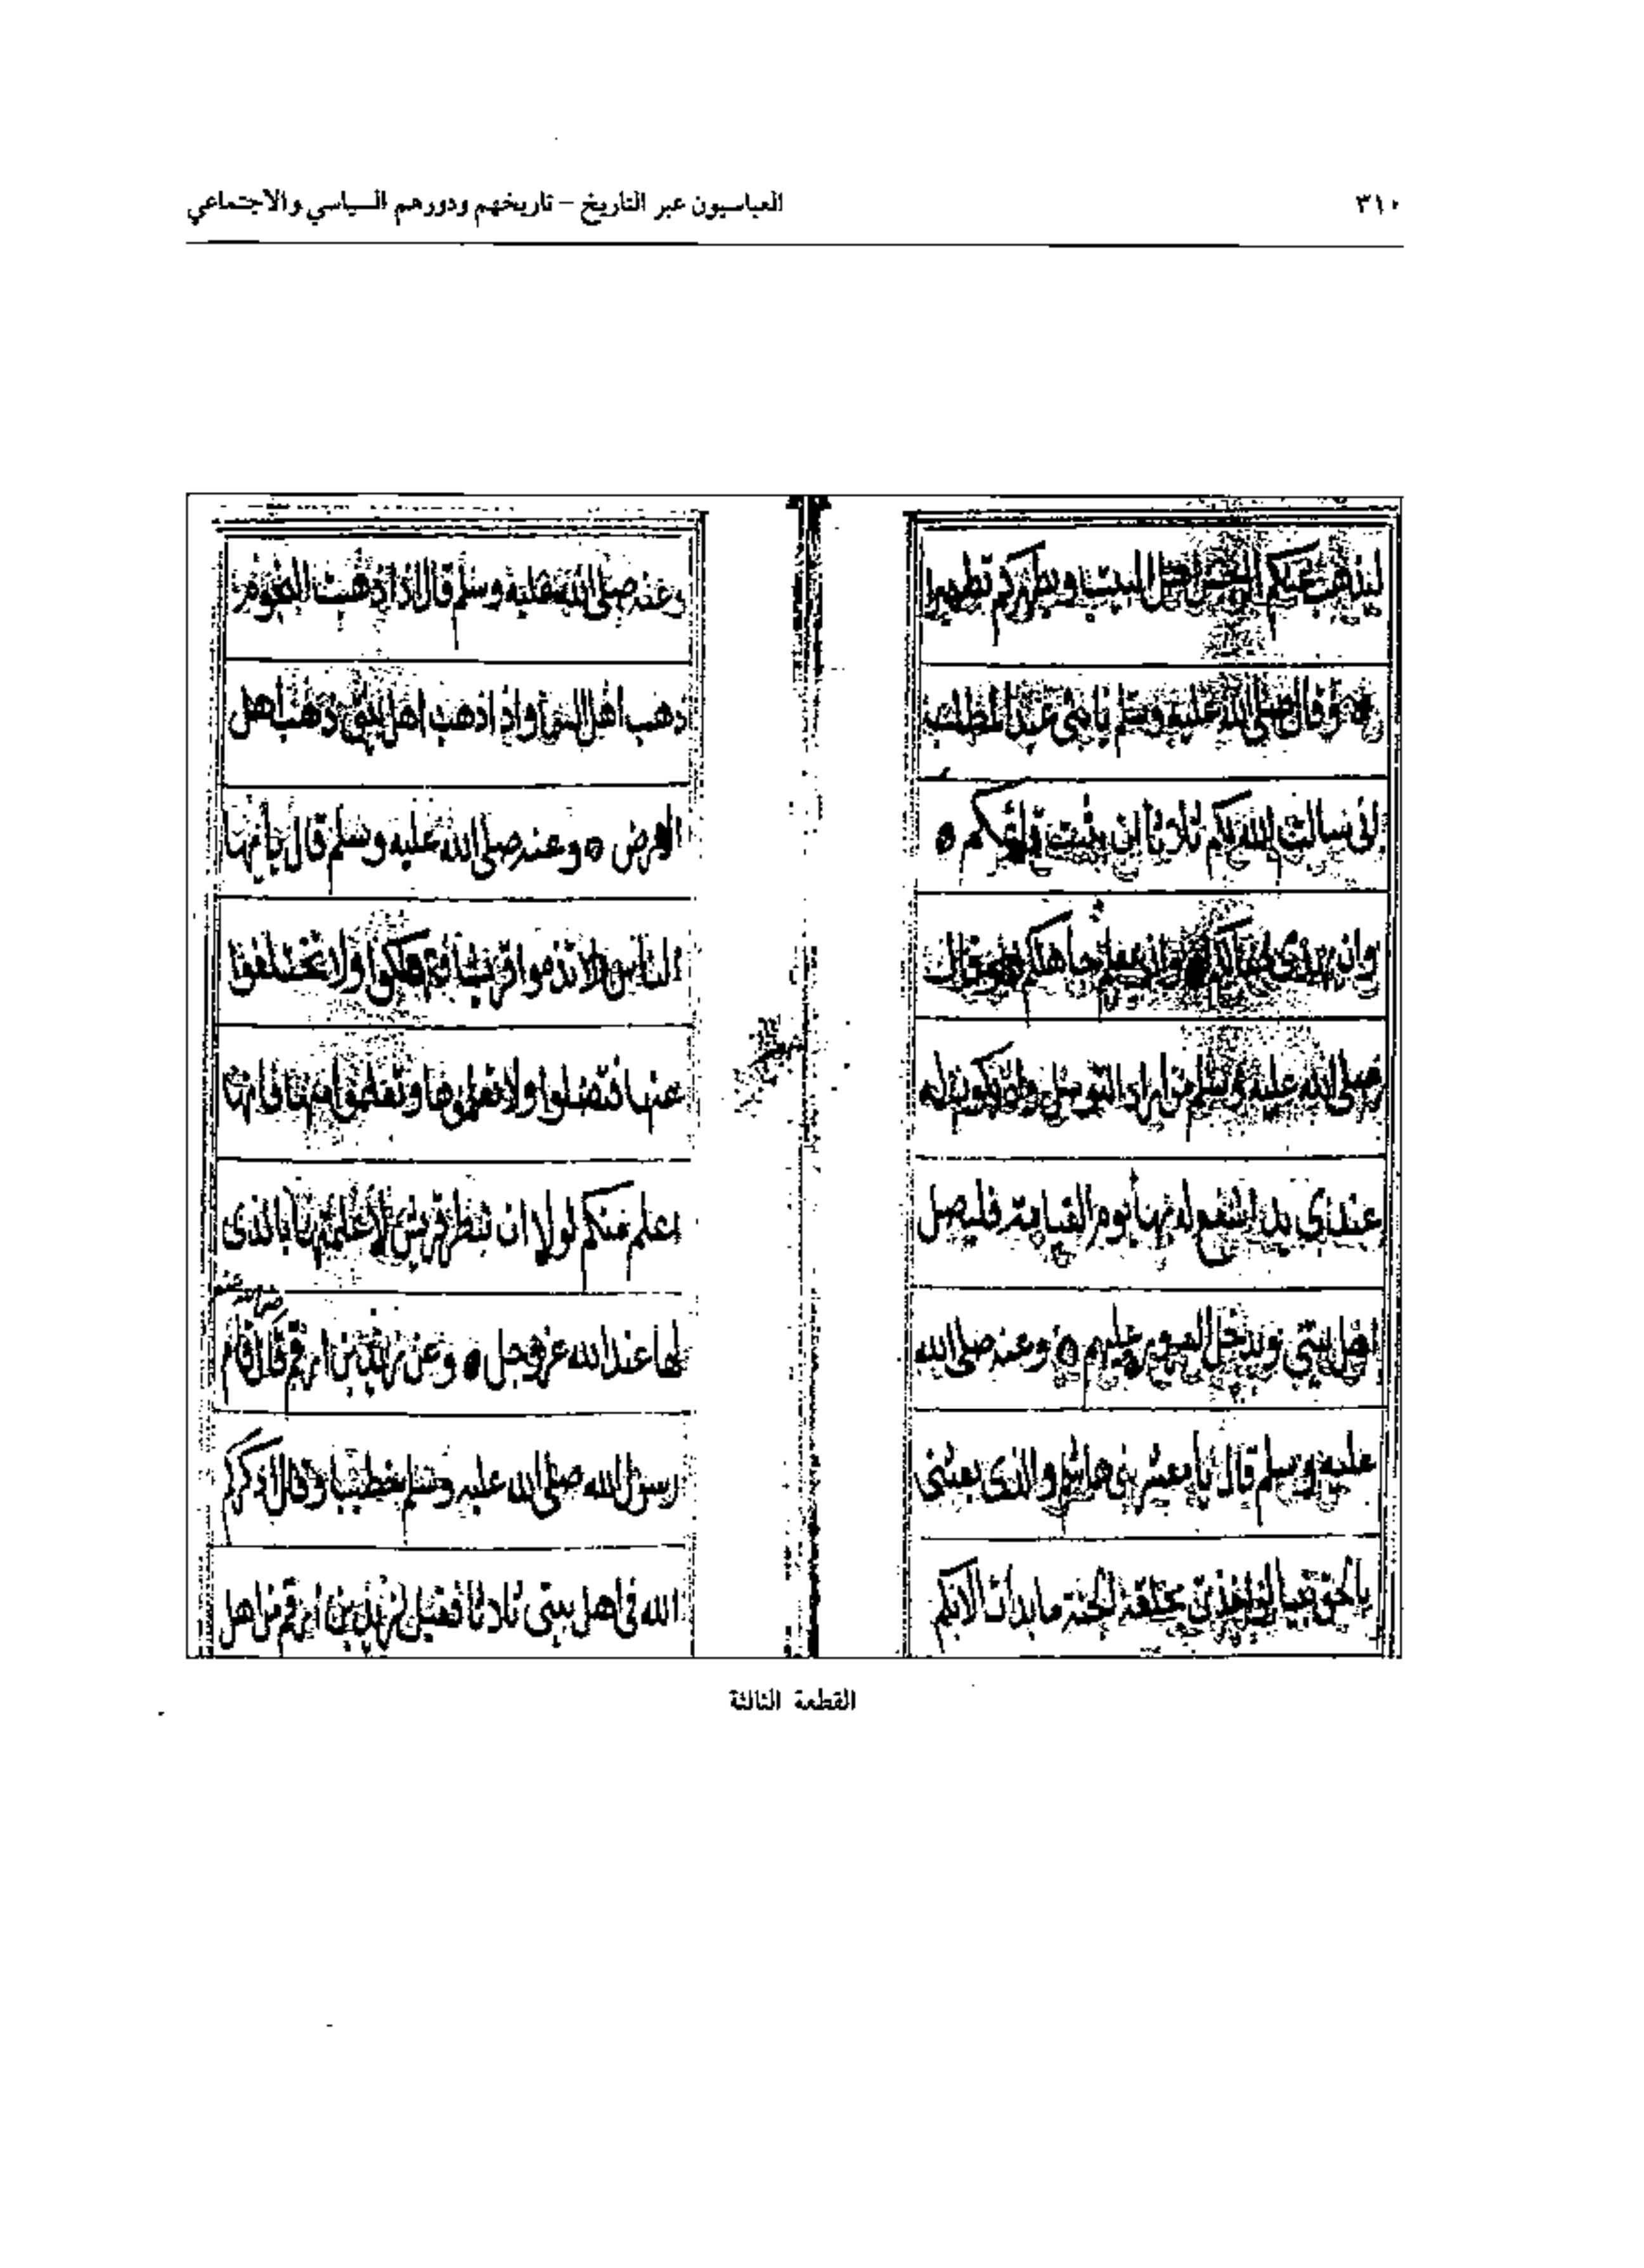 ٣١٠
العباسيون عبر التاريخ – تاريخهم ودورهم السياسي والاجتماعي
ليذهب عنكم الرجس اهل البيت ويطهركم تطهيرا
وقال صلى الله عليه وسلم يا بنى عبد المطلب
انى سالت الله لكم ثلاثا ان يثبت قائمكم
وان يهدى ضالكم وان يعلم جاهلكم وقال
صلى الله عليه وسلم من اراد التوسل وان يكون له
عندى يد اشفع له بها يوم القيامة فليصل
اهل بيتى ويدخل السرور عليهم وعنه صلى الله
عليه وسلم قال يا معشر بنى هاشم والذى بعثنى
بالحق نبيا لو اخذت بحلقة الجنة ما بدات الا بكم
وعنه صلى الله عليه وسلم قال اذا ذهبت النجوم
ذهب اهل السماء واذا ذهب اهل بيتى ذهب اهل
الارض وعنه صلى الله عليه وسلم قال يا ايها
الناس لا تذموا قريشا فتهلكوا ولا تختلفوا
عنها فتضلوا ولا تعلموها وتعلموا منها فانها
اعلم منكم لولا ان تبطر قريش لاعلمتها بالذى
لها عند الله عز وجل وعن زيد بن ارقم قال قام
رسول الله صلى الله عليه وسلم خطيبا وقال اذكركم
الله فى اهل بيتى ثلاثا فقيل لزيد بن ارقم من اهل
القطعة الثالثة